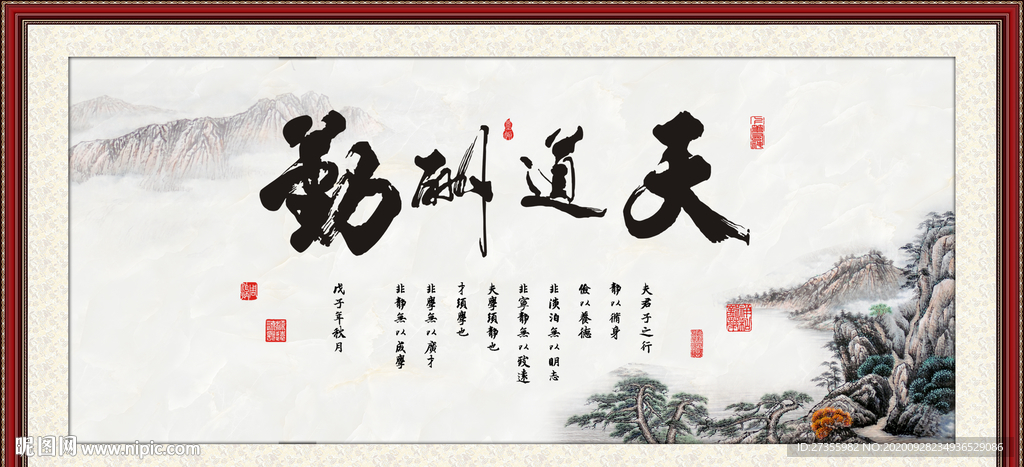 天道酬勤
夫君子之行
靜以修身
儉以養德
非淡泊無以明志
非寧靜無以致遠
夫學須靜也
才須學也
非學無以廣才
非靜無以成學
戊子年秋月
昵图网 www.nipic.com
ID:27355982 NO:20200928234936529086